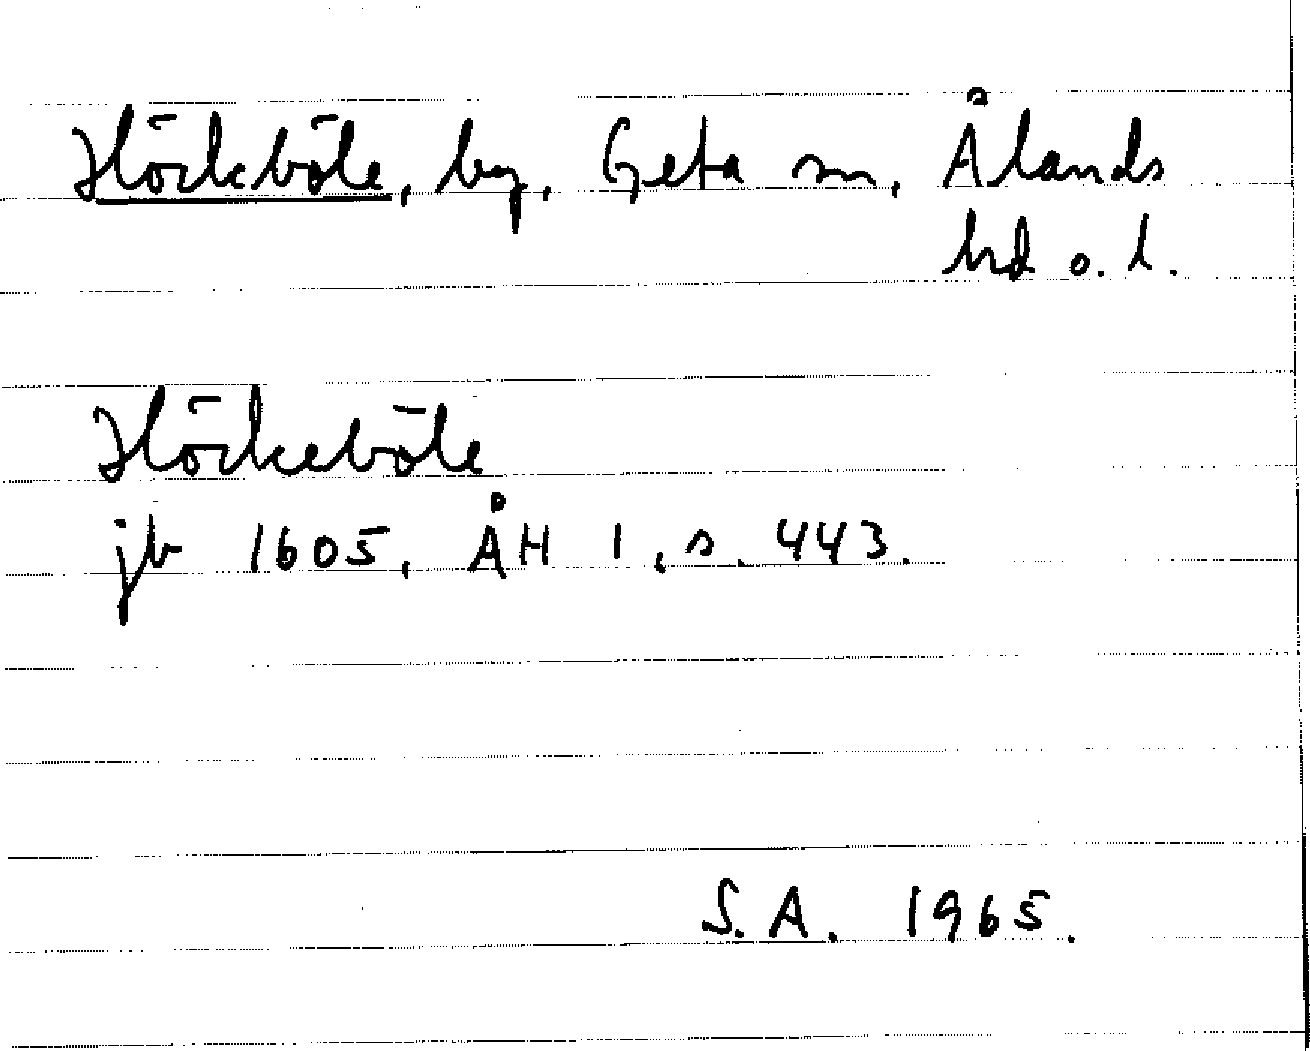 Höckböle, by, Geta sn, Ålands
hd o. l.
Höckeböle
jb 1605, ÅH 1, s. 443.
S.A. 1965.